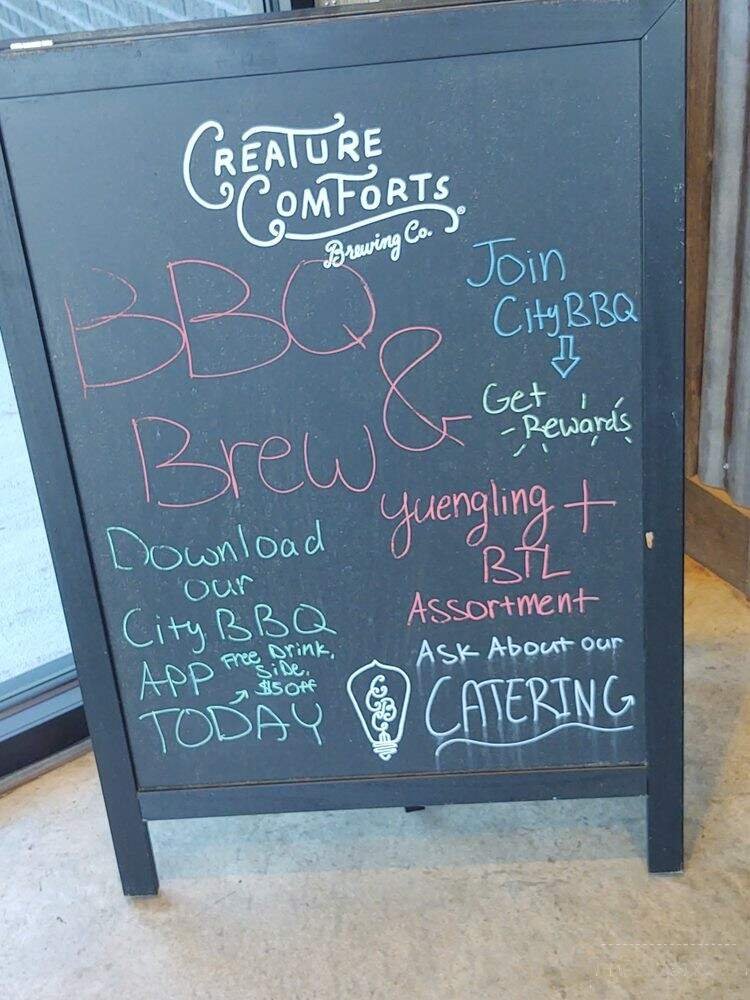 CREATURE
COMFORTS®
Brewing Co.
BBQ
&
Brew
Join
City BBQ
Get
Rewards
Yuengling +
BTL
Assortment
Download
our
City BBQ
APP
Free Drink,
Side,
$5 off
TODAY
Ask About our
CATERING
CCBC